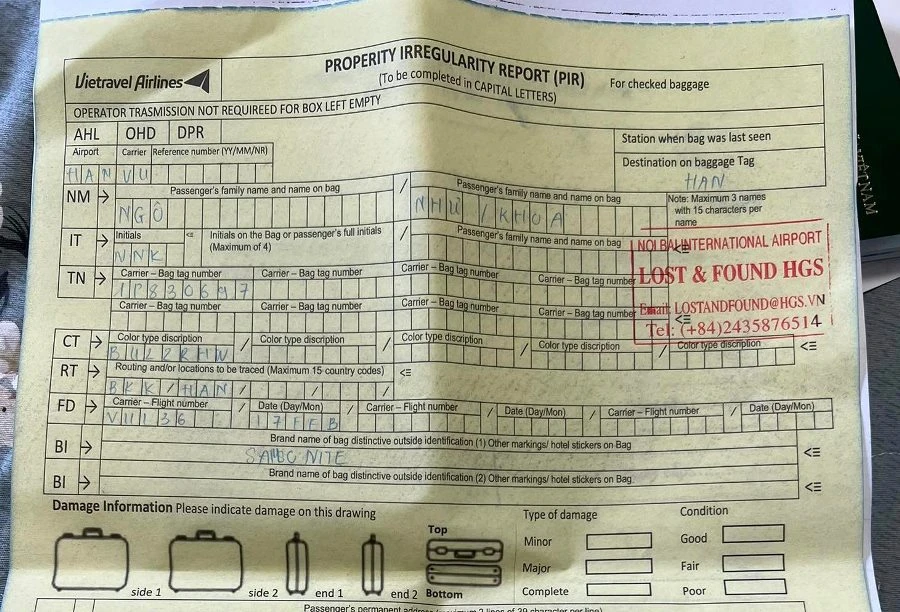 Vietravel Airlines
PROPERITY IRREGULARITY REPORT (PIR)
(To be completed in CAPITAL LETTERS)
For checked baggage
OPERATOR TRASMISSION NOT REQUIREED FOR BOX LEFT EMPTY
AHL OHD DPR
Station when bag was last seen
Airport Carrier Reference number (YY/MM/NR)
Destination on baggage Tag
HAN VU
HAN
NM → Passenger's family name and name on bag / Passenger's family name and name on bag
Note: Maximum 3 names with 15 characters per name
NGÔ NHƯ / KHOA
IT → Initials <= Initials on the Bag or passenger's full initials (Maximum of 4) / Passenger's family name and name on bag <=
NNK
NOI BAI INTERNATIONAL AIRPORT
LOST & FOUND HGS
Email: LOSTANDFOUND@HGS.VN
Tel: (+84)2435876514
TN → Carrier – Bag tag number Carrier – Bag tag number Carrier – Bag tag number Carrier – Bag tag number
Carrier – Bag tag number Carrier – Bag tag number Carrier – Bag tag number Carrier – Bag tag number <=
CT → Color type discription / Color type discription / Color type discription / Color type discription / Color type discription <=
RT → Routing and/or locations to be traced (Maximum 15 country codes) <=
BKK / HAN / / / /
FD → Carrier – Flight number / Date (Day/Mon) / Carrier – Flight number / Date (Day/Mon) / Carrier – Flight number / Date (Day/Mon)
VU136 17FEB
BI → Brand name of bag distinctive outside identification (1) Other markings/ hotel stickers on Bag <=
BI → Brand name of bag distinctive outside identification (2) Other markings/ hotel stickers on Bag <=
Damage Information Please indicate damage on this drawing
Type of damage Condition
Top
Minor Good
Major Fair
Complete Poor
side 1 side 2 end 1 end 2 Bottom
VIỆT NAM